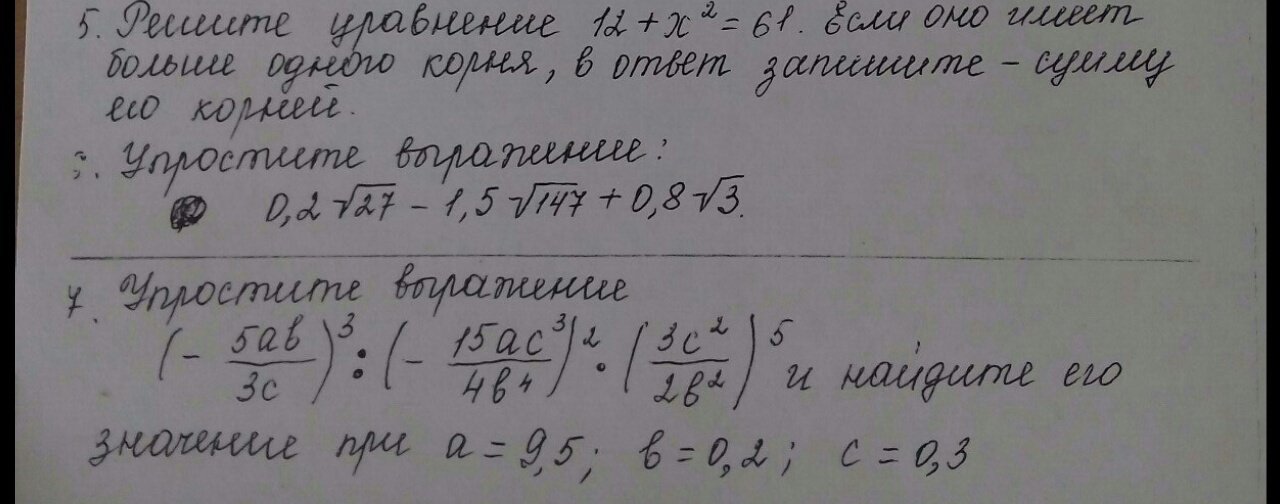 5. Решите уравнение 12 + x² = 61. Если оно имеет
больше одного корня, в ответ запишите – сумму
его корней.
6. Упростите выражение:
0,2√27 – 1,5√147 + 0,8√3.
7. Упростите выражение
(– 5ab/3c)³ : (– 15ac³/4b⁴)² · (3c²/2b²)⁵ и найдите его
значение при a = 9,5; b = 0,2; c = 0,3